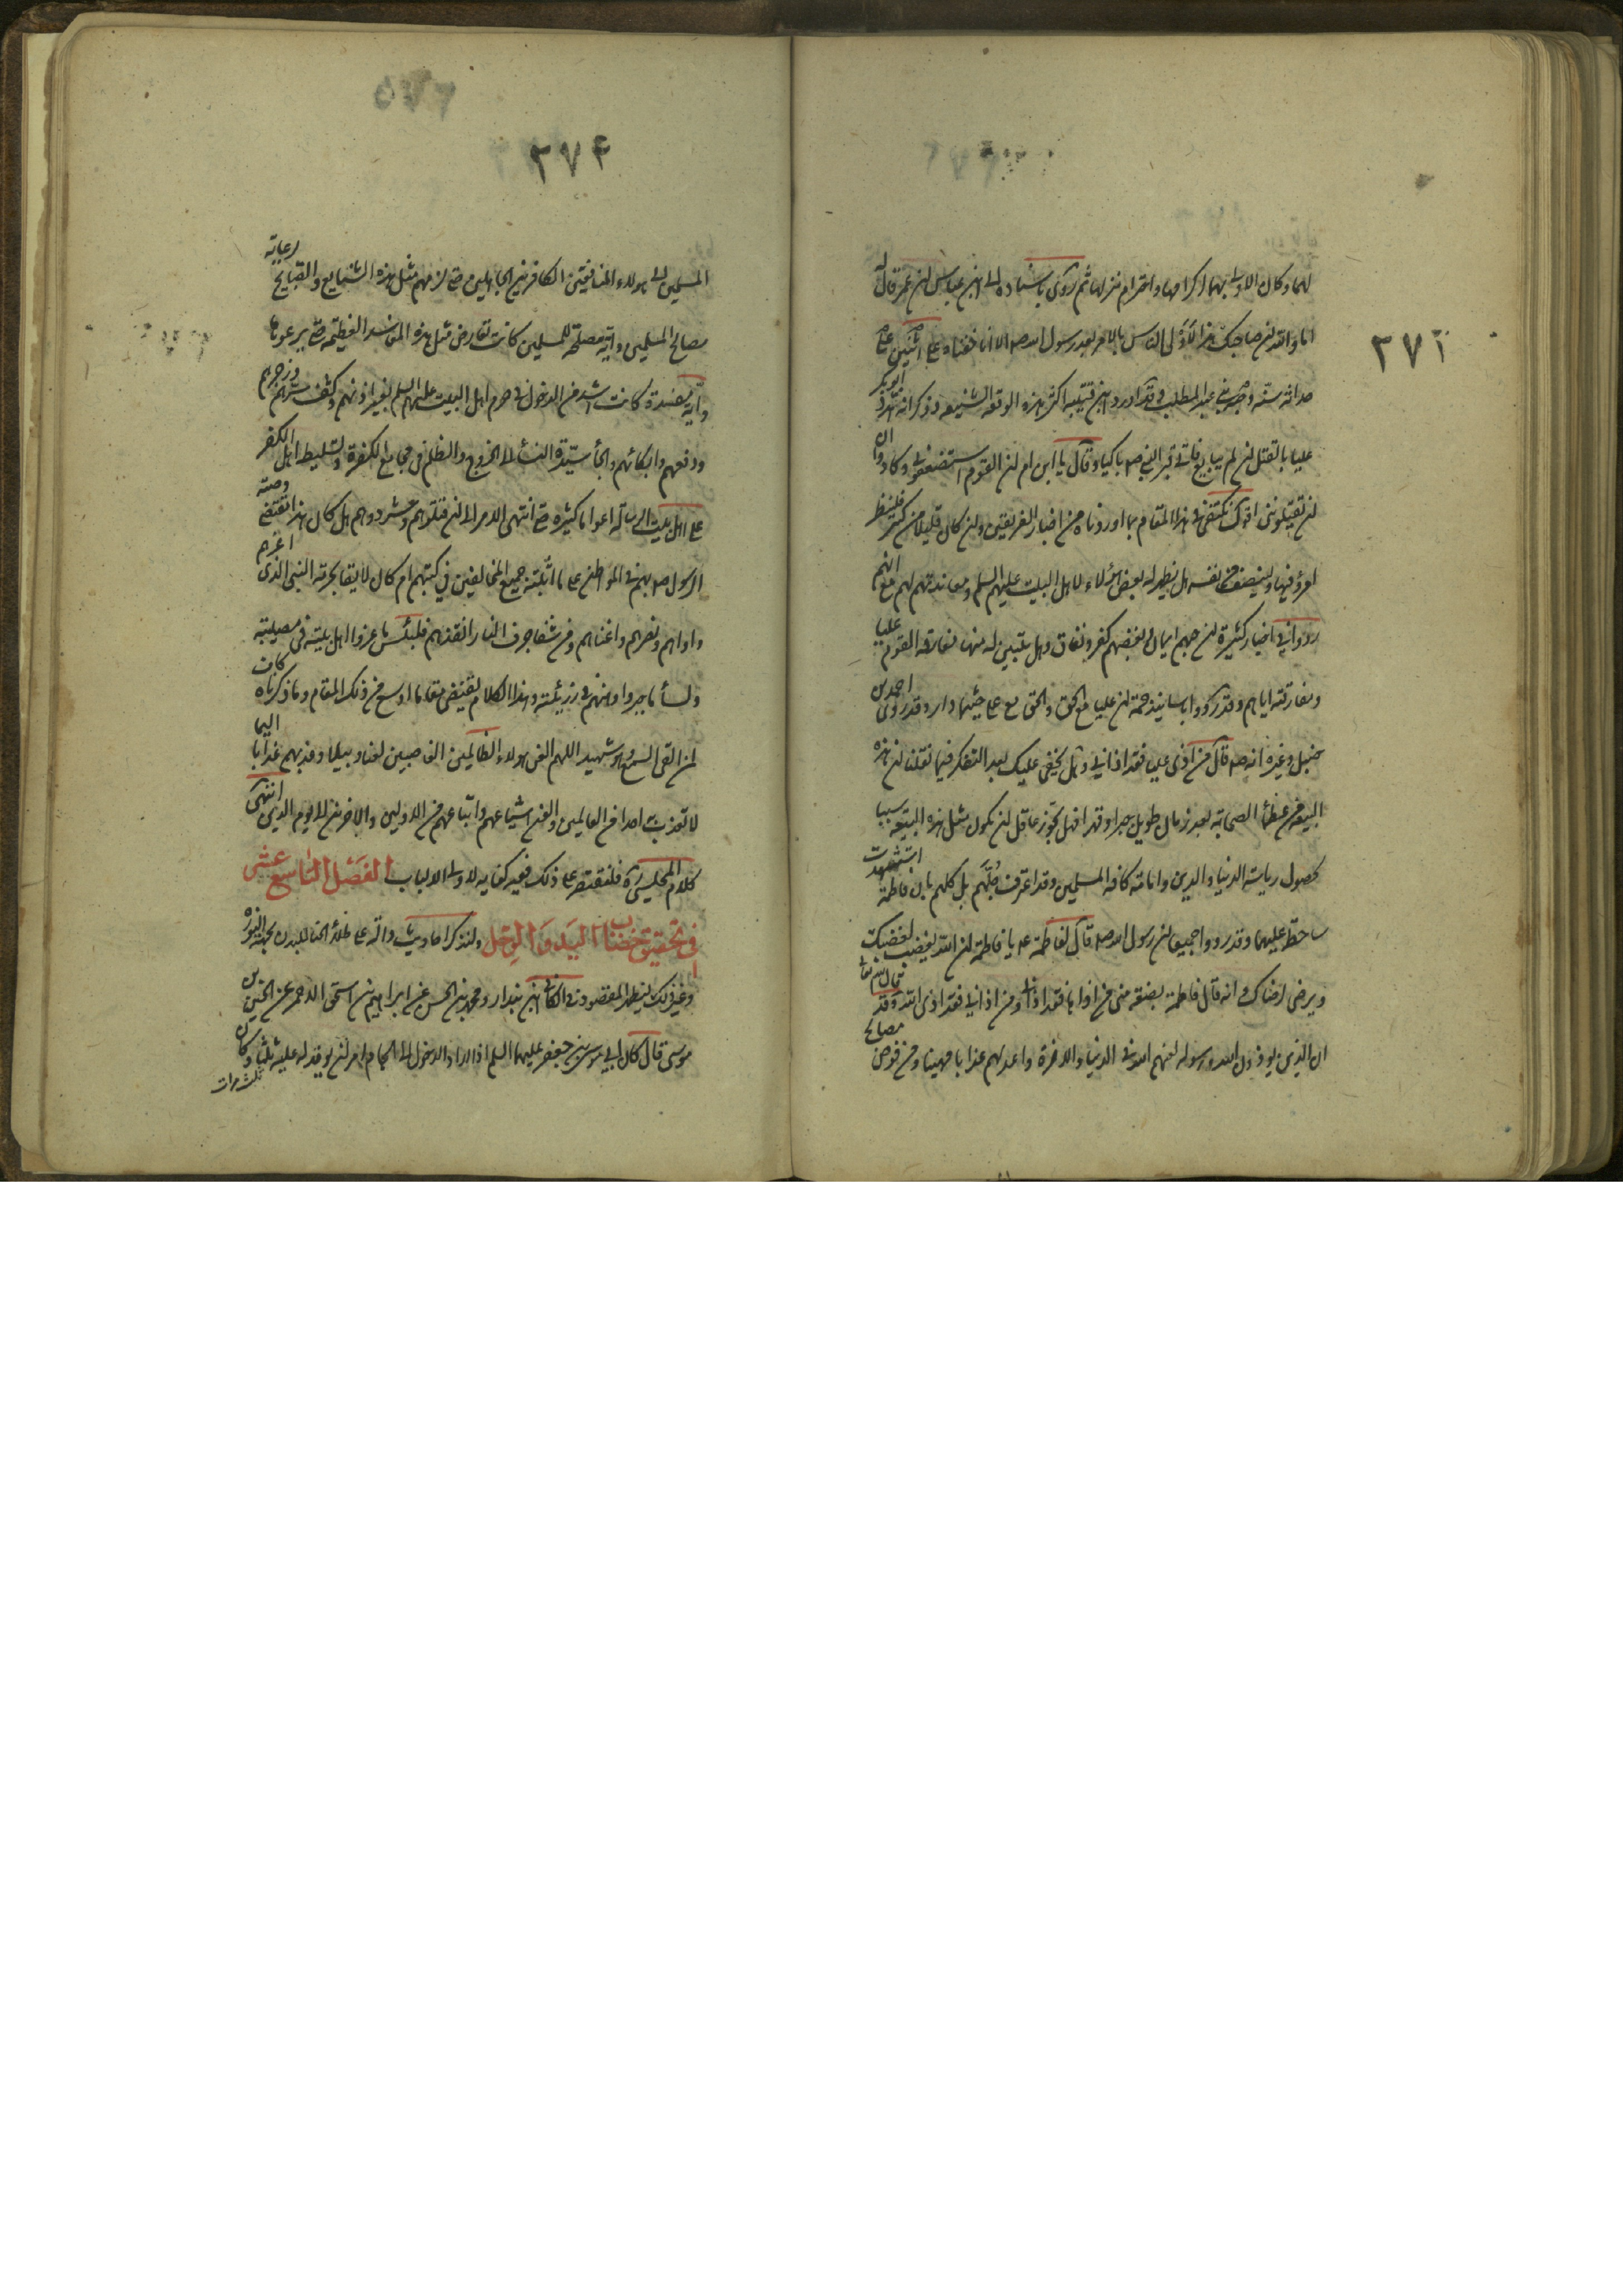 ٢٧١
لهما وكان الاولى بهما اكرامها واحترام منزلها ثم روى باسناده الى ابن عباس ان عمر قال له
اما والله ان صاحبك هذا لاولى الناس بالامر بعد رسول الله صه الا انا خفناه على اثنتين على
حداثة سنه وحبه بني عبد المطلب وقد اورد ابن قتيبة اكثر هذه الوقعة الشنيعة وذكر انه هدد ابوبكر
عليا بالقتل ان لم يبايع فاتى قبر النبي صه باكيا وقال يا ابن ام ان القوم استضعفوني وكادوا ان
ان يقتلونني اقول نكتفي في هذا المقام بما اوردناه من اخبار الفريقين وان كان قليلا من كثير فلينظر
امرؤ فيها ولينصف من نفسه هل يظهر له بعض هؤلاء لاهل البيت عليهم السلم ومعاندتهم لهم مع انهم
رووا في اخبار كثيرة ان حبهم ايمان وبغضهم كفر ونفاق وهل يتبين له منها مفارقة القوم عليا
ومفارقته اياهم وقد رووا باسانيد جمة ان عليا مع الحق والحق مع علي حيثما دار وقد روى احمد بن
حنبل وغيره انه صه قال من اذى عليا فقد اذاني وهل يخفى عليك بعد التفكر فيما نقلنا ان هذه
البيعة من عظماء الصحابة بعد زمان طويل جبرا وقهرا فهل يجوز عاقل ان يكون مثل هذه البيعة سببا
لحصول رياسة الدنيا والدين وامامة كافة المسلمين وقد اعترف جلهم بل كلهم بان فاطمة استشهدت
ساخط عليهما وقد رووا جميعا ان رسول الله صه قال لفاطمة عه يا فاطمة ان الله يغضب لغضبك
ويرضى لرضاك وانه قال فاطمة بضعة مني من اذاها فقد اذاني ومن اذاني فقد اذى الله وقد قال الله تعا
ان الذين يؤذون الله ورسوله لعنهم الله في الدنيا والاخرة واعد لهم عذابا مهينا ومن فوض مصالح
٢٧٢
المسلمين الى هولاء المنافقين الكافرين الجاهلين حتى لزمهم مثل هذه الشنايع والقبايح لرعاية
مصالح المسلمين واية مصلحة للمسلمين كانت تعارض مثل هذه المفاسد العظيمة حتى يرعوها
واية مفسدة كانت اشد من الدخول في حرم اهل البيت عليهم السلم بغير اذنهم وكشف سترهم وزجرهم
ودفعهم وابكائهم والجأ سيدة النسأ الى الخروج والتظلم في مجامع الكفرة وتسليط اهل الكفر
على اهل بيت الرسالة اعواما كثيره حتى انتهى الامر الى ان قتلوهم وشردوهم هل كان هذا تقتضي وصية
الرسول صه بهم في المواطن على ما اثبته جميع المخالفين في كتبهم ام كان لايقا بحرمة النبي الذي اعزهم
واواهم ونصرهم واغناهم ومن شفا جرف النار انقذهم فلبئس ما عزوا اهل بيته في مصيبته
ولسأ ما جبروا وهنهم في رزيئته وهذا الكلام يقتضي مقاما اوسع من ذلك المقام وما ذكرناه كاف
لمن القى السمع وهو شهيد اللهم العن هولاء الظالمين الغاصبين لعنا وبيلا وعذبهم عذابا اليما
لا تعذب احدا من العالمين والعن اشياعهم واتباعهم من الاولين والاخرين الى يوم الدين انتهى
كلام المجلسي ره فلنقتصر على ذلك ففيه كفاية لاولى الالباب الفصل التاسع عشر
في تحقيق خضاب اليد والرجل ولنذكر احاديث دالة على طلاء الحنا للبدن بعد النورة
وغير ذلك ليظهر المقصود في الكافي ابن بندار ومحمد بن الحسن عن ابراهيم بن اسحق الاحمر عن الحسين بن
موسى قال كان ابي موسى بن جعفر عليهما السلم اذا اراد الدخول الى الحمام امر ان يوقد له عليه ثلثا وكان
ثلث مرات